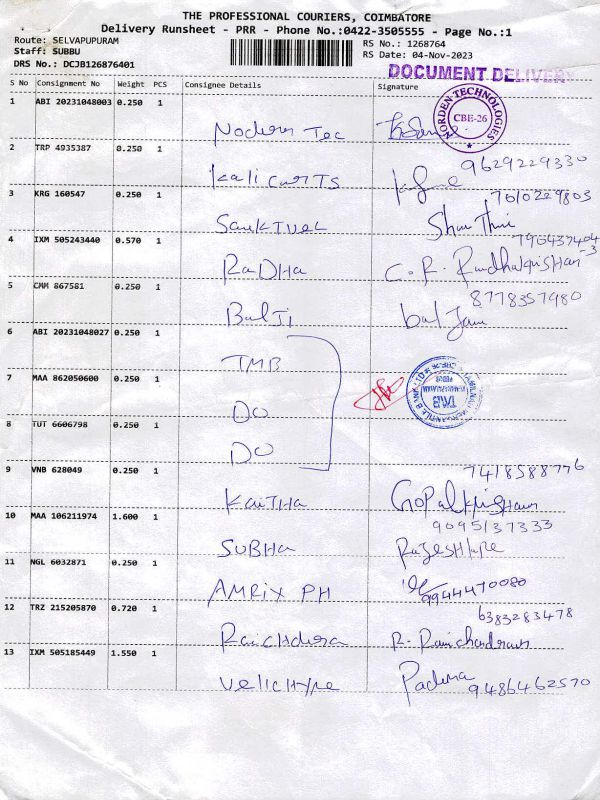 THE PROFESSIONAL COURIERS, COIMBATORE
Delivery Runsheet - PRR - Phone No.:0422-3505555 - Page No.:1
Route: SELVAPUPURAM
Staff: SUBBU
DRS No.: DCJB126876401
RS No.: 1268764
RS Date: 04-Nov-2023
DOCUMENT DELIVERY
S No Consignment No Weight PCS Consignee Details Signature
1 ABI 20231048003 0.250 1
NORDEN TECHNOLOGIES
CBE-26
2 TRP 4935387 0.250 1 9629229330
3 KRG 160547 0.250 1 7010229803
4 IXM 505243440 0.570 1
RaDHa
5 CMM 867581 0.250 1 8778357980
BalJi
6 ABI 20231048027 0.250 1
TMB
7 MAA 862050600 0.250 1
DO
8 TUT 6606798 0.250 1
DO
9 VNB 628049 0.250 1 7418588776
10 MAA 106211974 1.600 1 9095137333
SUBHa
11 NGL 6032871 0.250 1
AMRIX PH 9944470080
12 TRZ 215205870 0.720 1 6383283478
13 IXM 505185449 1.550 1
9486462570